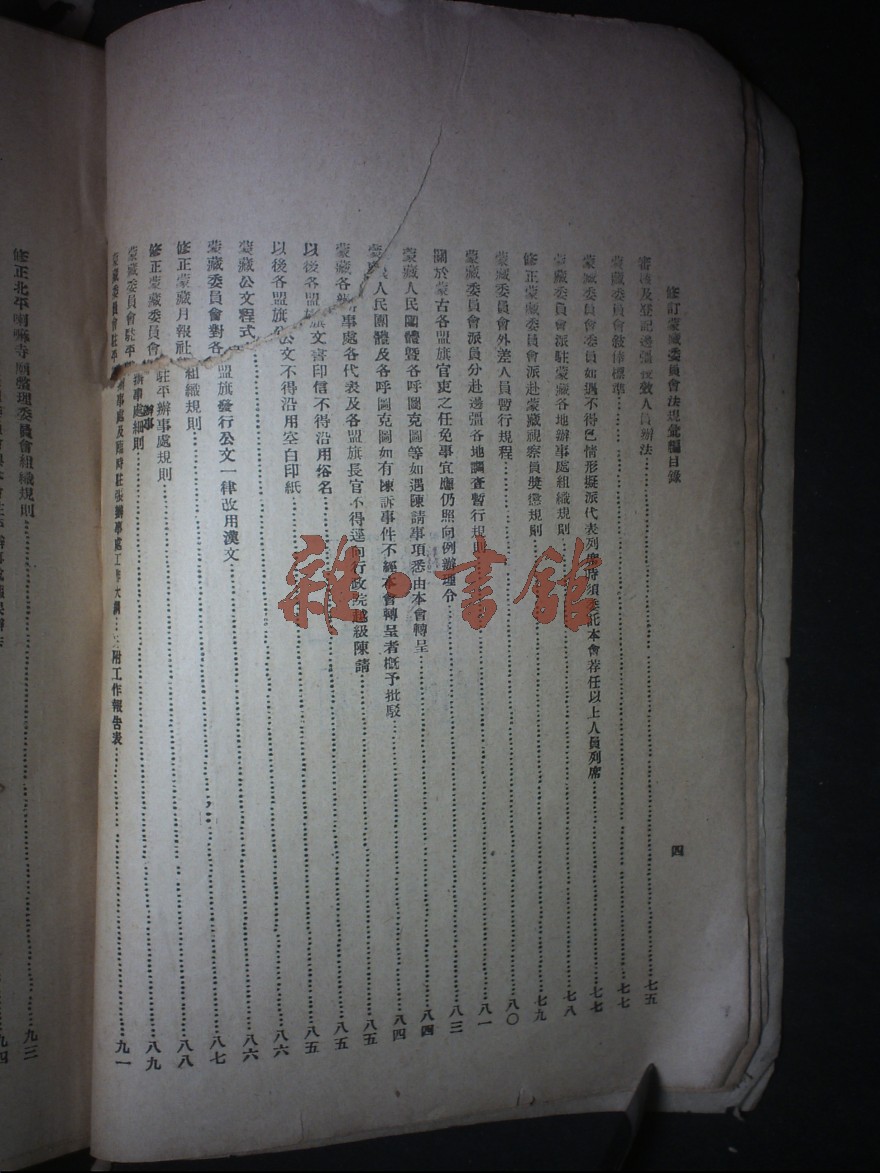 修訂蒙藏委員會法規彙編目錄
四
審查及登記邊疆 效人員辦法 七五
蒙藏委員會敘俸標準 七七
蒙藏委員會委員如遇不得已情形擬派代表列席時須委託本會荐任以上人員列席 七七
蒙藏委員會派駐蒙藏各地辦事處組織規則 七八
修正蒙藏委員會派赴蒙藏視察員獎懲規則 七九
蒙藏委員會外差人員暫行規程 八〇
蒙藏委員會派員分赴邊疆各地調查暫行規則 八一
關於蒙古各盟旗官吏之任免事宜應仍照向例辦理令 八三
蒙藏人民團體暨各呼圖克圖等如遇陳請事項悉由本會轉呈 八四
蒙 人民團體及各呼圖克圖如有陳訴事件不經本會轉呈者概予批駁 八四
蒙藏各 辦事處各代表及各盟旗長官不得逕向行政院越級陳請 八五
以後各盟旗文書印信不得沿用俗名 八五
以後各盟旗公文不得沿用空白印紙 八六
蒙藏公文程式 八六
蒙藏委員會對各盟旗發行公文一律改用漢文 八七
修正蒙藏月報社組織規則 八八
修正蒙藏委員會駐平辦事處規則 八九
蒙藏委員會駐平辦事處辦事細則
蒙藏委員會駐平辦事處及臨時駐張辦事處工作大綱 附工作報告表 九一
修正北平喇嘛寺廟整理委員會組織規則 九三
九四
雜·書館